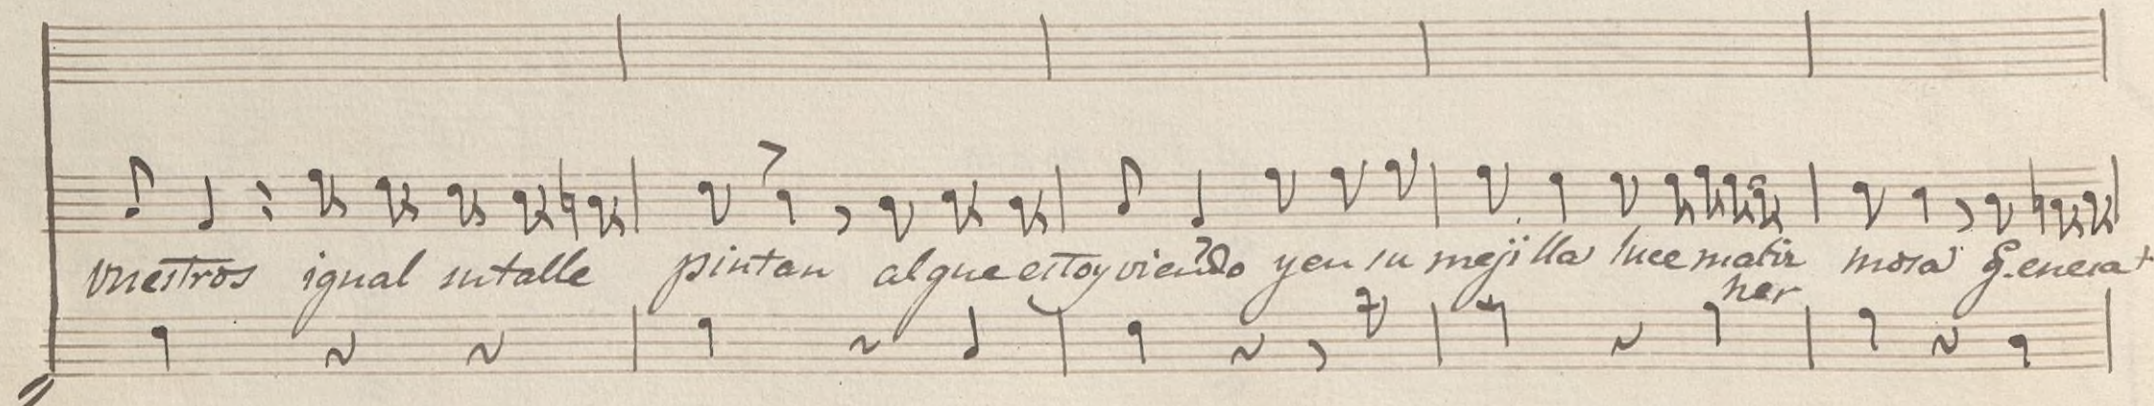 vuestros igual sutalle pintan alque estoy viendo yen su mejilla luce matiz mosa
her